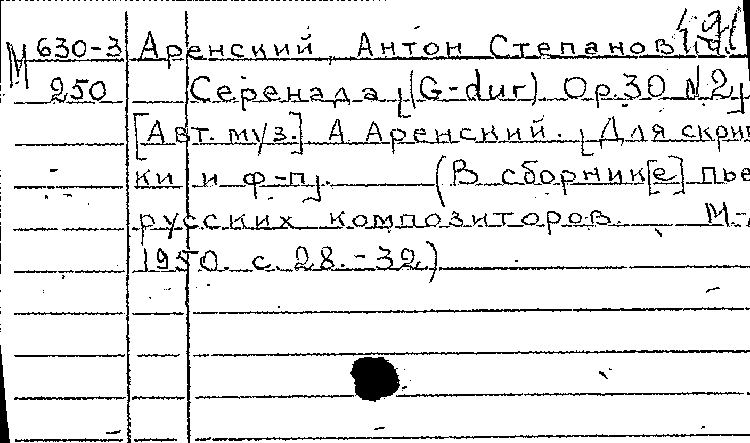 М 630-3 Аренский, Антон Степанов
250 Серенада (G-dur) Ор.30 №2
[Авт. муз.] А Аренский. Для скрип
ки и ф-п. (В сборник[е] пье
русских композиторов. М-
1950. с. 28.-32.)